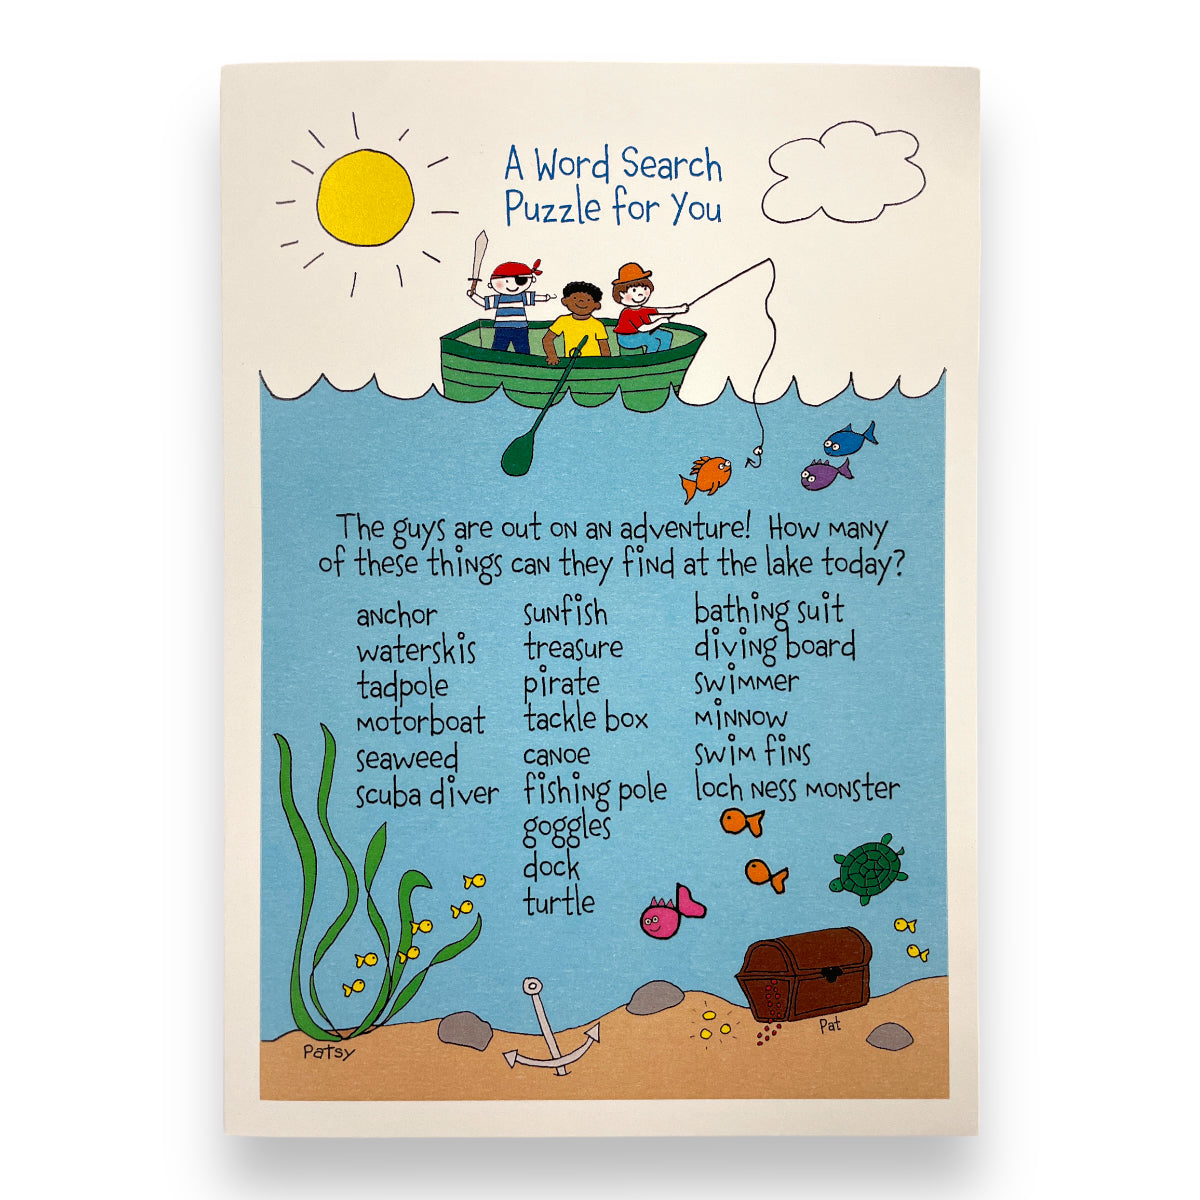 A Word Search
Puzzle for You
The guys are out on an adventure! How many
of these things can they find at the lake today?
anchor
waterskis
tadpole
motorboat
seaweed
scuba diver
sunfish
treasure
pirate
tackle box
canoe
fishing pole
goggles
dock
turtle
bathing suit
diving board
swimmer
minnow
swim fins
loch ness monster
Patsy
Pat